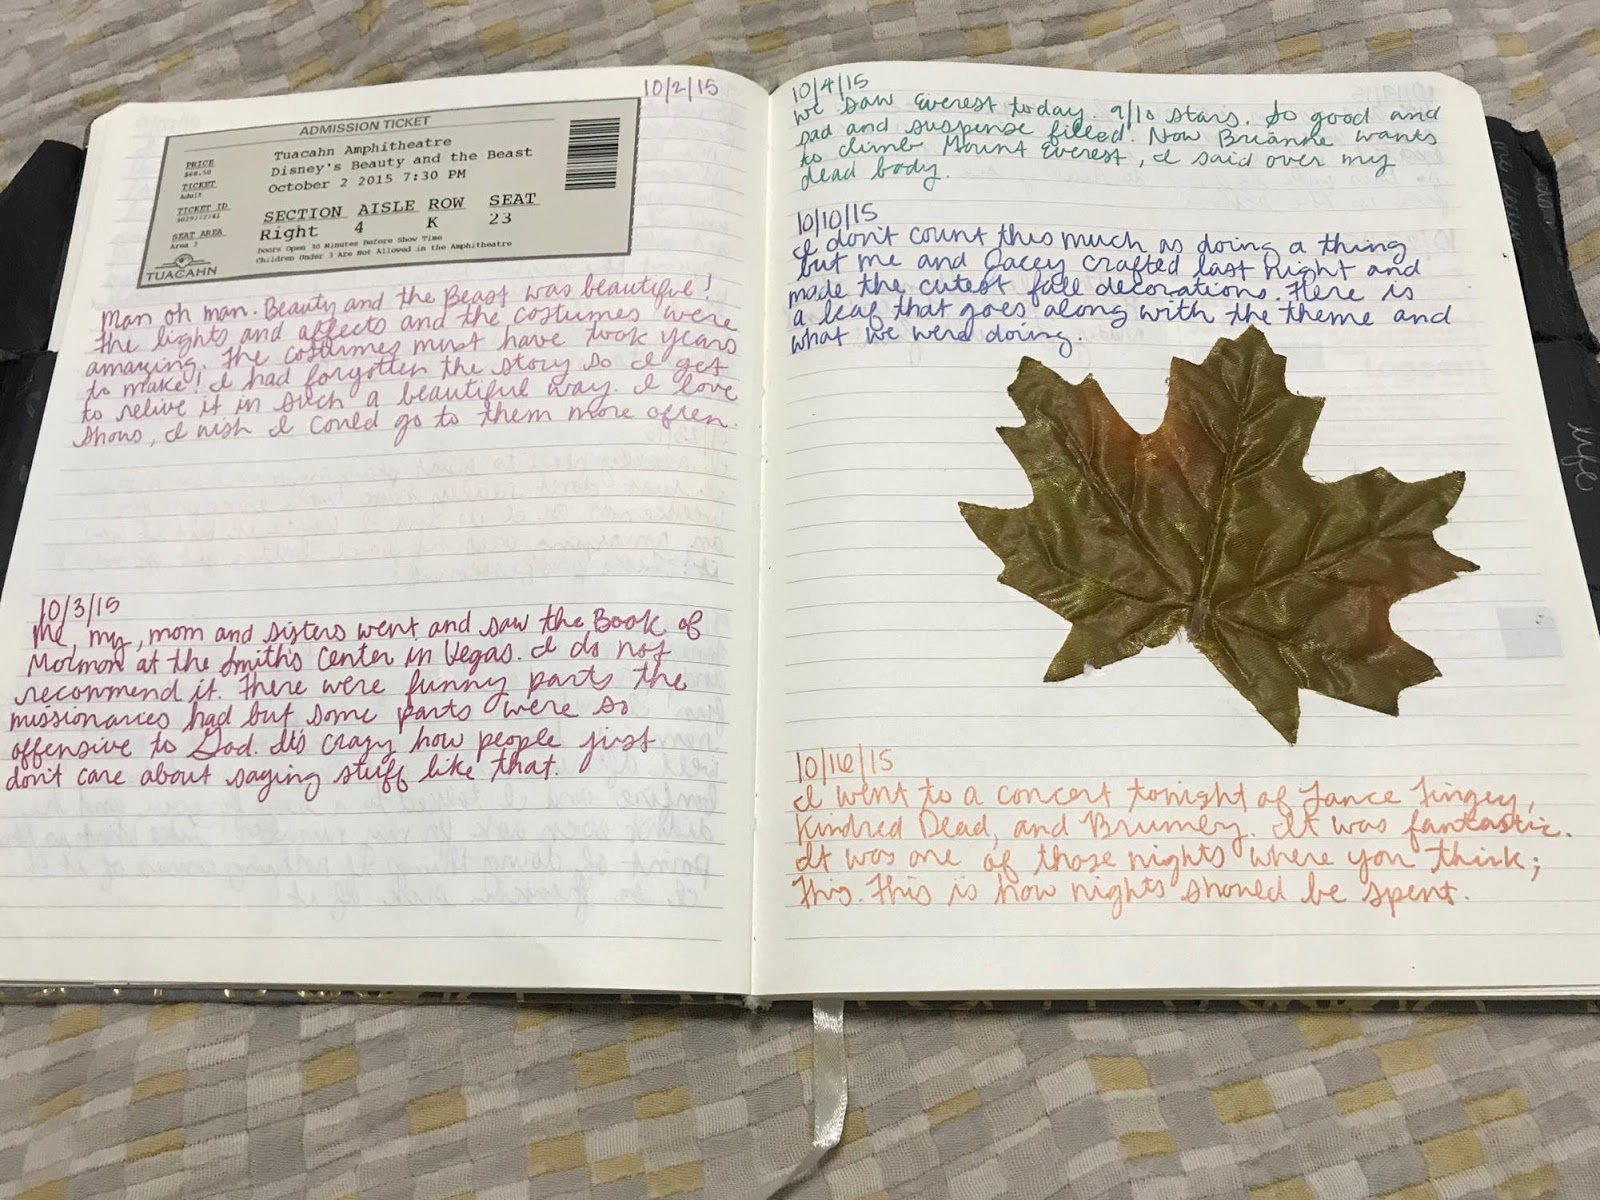 10/2/15
ADMISSION TICKET
Tuacahn Amphitheatre
Disney's Beauty and the Beast
October 2 2015 7:30 PM
PRICE
$60.50
TICKET
Adult
TICKET ID
SEAT AREA
Area 2
SECTION AISLE ROW SEAT
Right 4 K 23
Doors Open 30 Minutes Before Show Time
Children Under 3 Are Not Allowed in the Amphitheatre
TUACAHN
Man oh man. Beauty and the Beast was beautiful!
the lights and affects and the costumes were
amazing. The costumes must have took years
to make! I had forgotten the story so I get
to relive it in such a beautiful way. I love
shows, I wish I could go to them more often.
10/3/15
Me, my, mom and sisters went and saw the Book of
Mormon at the Smith's Center in Vegas. I do not
recommend it. There were funny parts the
missionaries had but some parts were so
offensive to God. It's crazy how people just
don't care about saying stuff like that.
10/4/15
We saw Everest today. 9/10 stars. So good and
sad and suspense filled. Now Brianne wants
to climb Mount Everest, I said over my
dead body.
10/10/15
I don't count this much as doing a thing
but me and Jacey crafted last night and
made the cutest fall decorations. Here is
a leaf that goes along with the theme and
what we were doing.
10/16/15
I went to a concert tonight of Lance Tingey,
Kindred Dead, and Brumby. It was fantastic.
It was one of those nights where you think;
This. This is how nights should be spent.
life